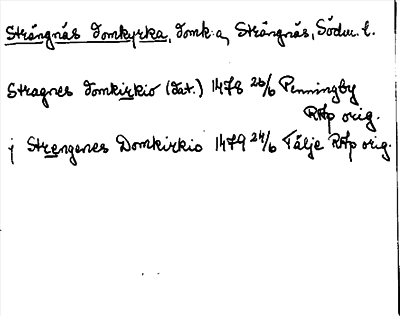 Strängnäs domkyrka, domk:a, Strängnäs, Södm. l.
Stragnes domkirkio (dat.) 1478 26/6 Penningby
RAp orig.
j Strengenes Domkirkio 1479 24/6 Tälje RAp orig.